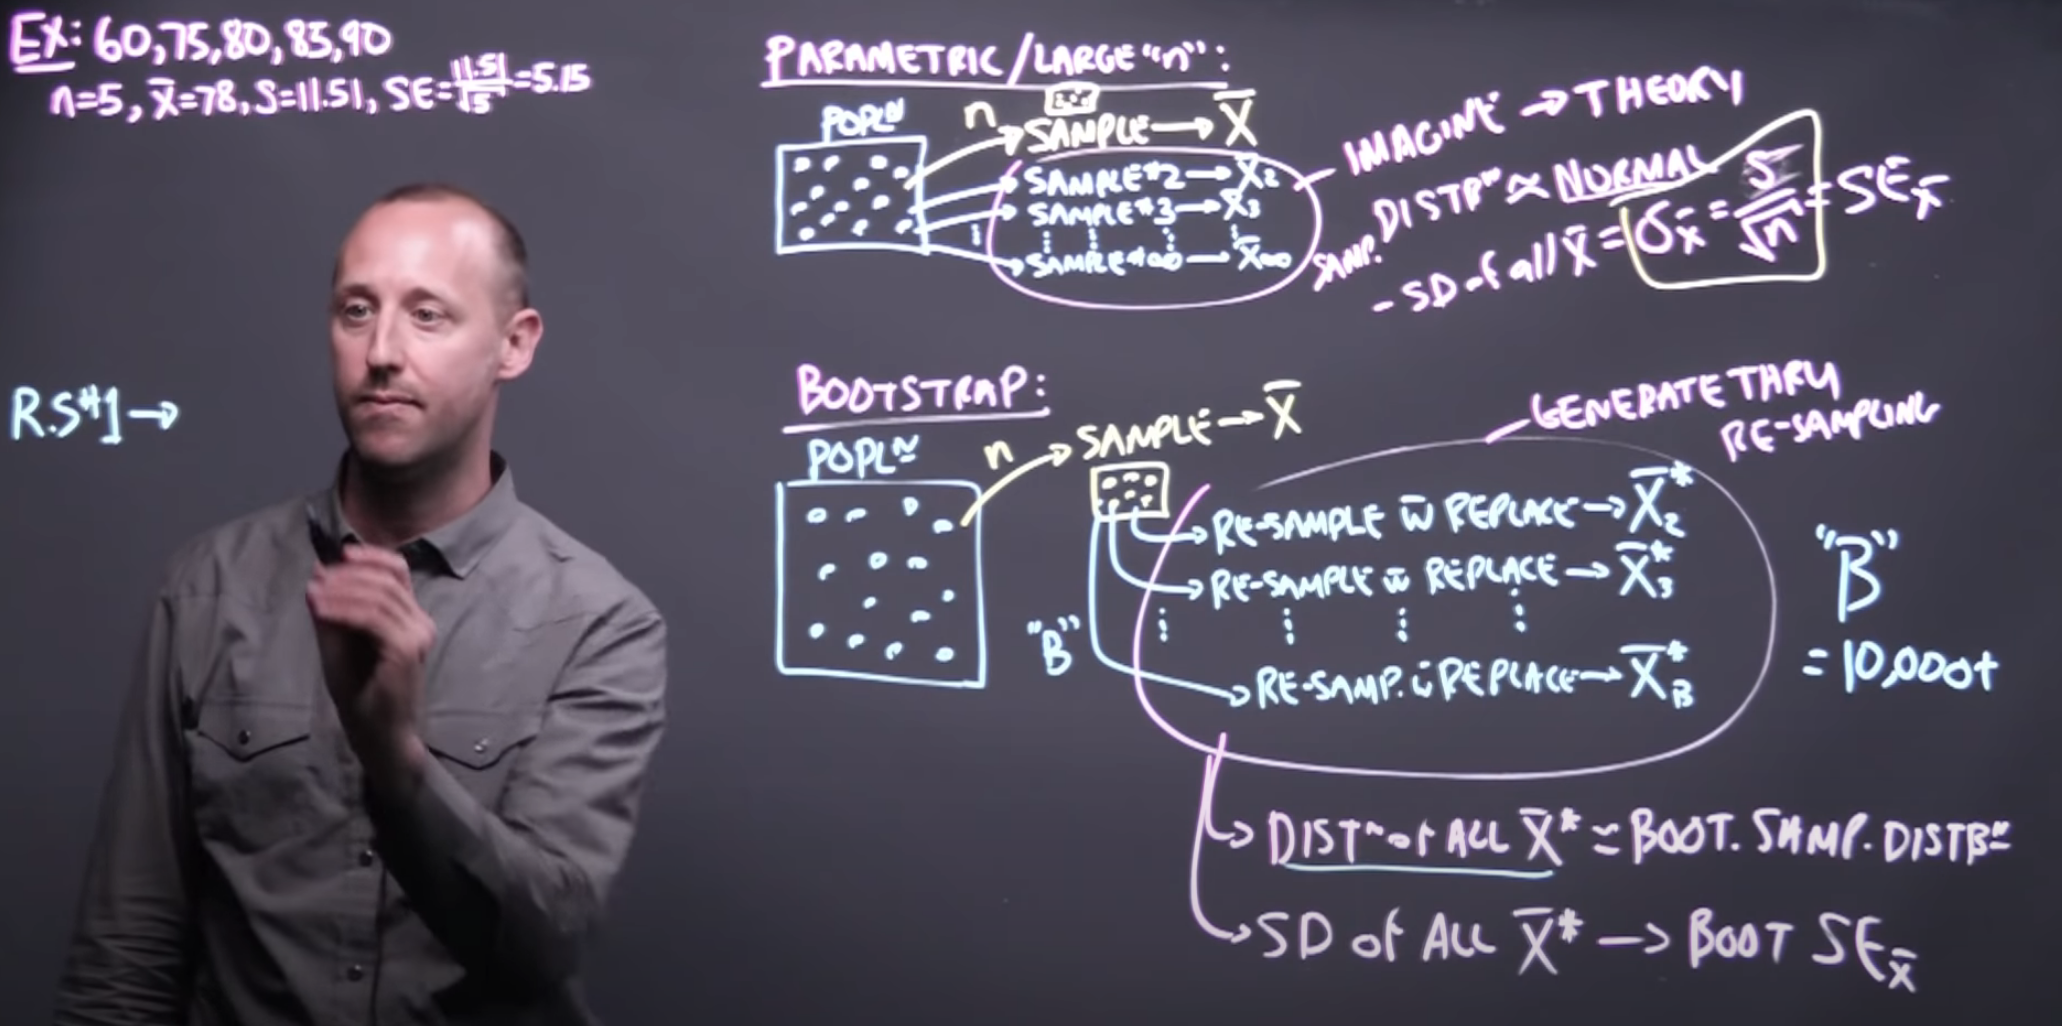 EX: 60,75,80,85,90
n=5, x̄=78, S=11.51, SE=11.51/√5=5.15
R.S#1→
PARAMETRIC/LARGE "n":
POPLN
n
SAMPLE→X̄
SAMPLE#2→X̄2
SAMPLE#3→X̄3
SAMPLE#∞→X̄∞
IMAGINE→THEORY
SAMP. DISTBN ≈ NORMAL
- SD of all X̄ = σx̄ = S/√n = SEx̄
BOOTSTRAP:
POPLN
n
SAMPLE→X̄
GENERATE THRU
RE-SAMPLING
RE-SAMPLE w̄ REPLACE→X̄*2
RE-SAMPLE w̄ REPLACE→X̄*3
"B"
RE-SAMP. w̄ REPLACE→X̄*B
"B"
=10,000+
DISTN of ALL X̄* ≈ BOOT. SAMP. DISTBN
SD of ALL X̄* → BOOT SEx̄